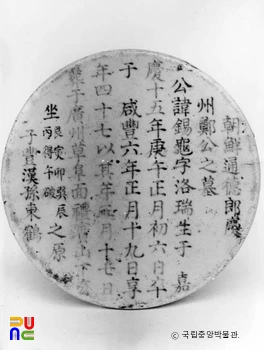 朝鮮通德郎慶
州鄭公之墓
公諱錫龜字洛瑞生于 嘉
慶十五年庚午正月初六日卒
于 咸豐六年正月十九日享
年四十七以其年月十七日
葬于廣州草阜面禮賓山下
坐艮寅卯巽辰丙得午破之原
子豐漢孫東鶴
© 국립중앙박물관.